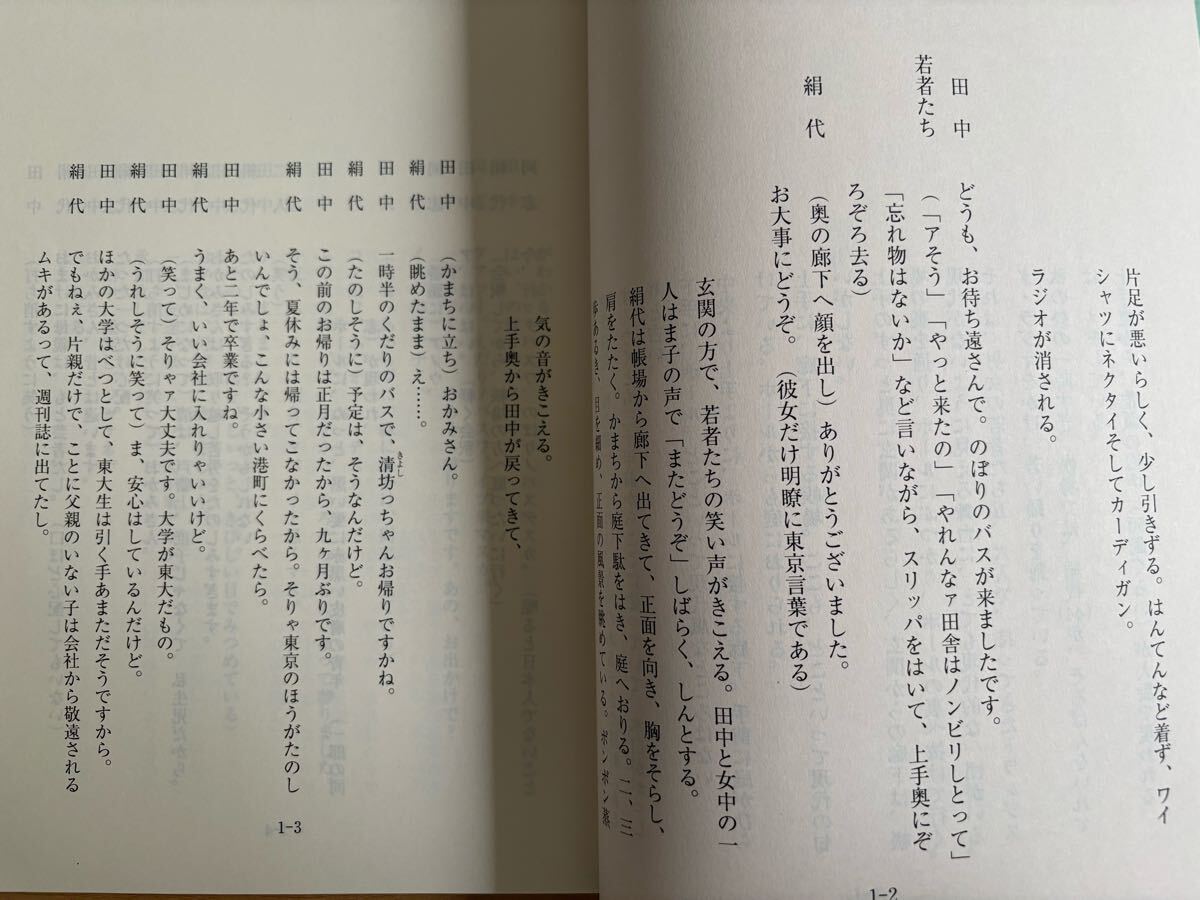 片足が悪いらしく、少し引きずる。はんてんなど着ず、ワイ
シャツにネクタイそしてカーディガン。
ラジオが消される。
田中 どうも、お待ち遠さんで。のぼりのバスが来ましたです。
若者たち (「アそう」「やっと来たの」「やれんなァ田舎はノンビリしとって」
「忘れ物はないか」など言いながら、スリッパをはいて、上手奥にぞ
ろぞろ去る)
絹代 (奥の廊下へ顔を出し) ありがとうございました。
お大事にどうぞ。 (彼女だけ明瞭に東京言葉である)
玄関の方で、若者たちの笑い声がきこえる。田中と女中の一
人はま子の声で「またどうぞ」しばらく、しんとする。
絹代は帳場から廊下へ出てきて、正面を向き、胸をそらし、
肩をたたく。かまちから庭下駄をはき、庭へおりる。二、三
歩あるき、目を細め、正面の風景を眺めている。ポンポン蒸
1-2
気の音がきこえる。
上手奥から田中が戻ってきて、
田中 (かまちに立ち) おかみさん。
絹代 (眺めたまま) え……。
田中 一時半のくだりのバスで、清坊っちゃんお帰りですかね。
きよし
絹代 (たのしそうに) 予定は、そうなんだけど。
田中 この前のお帰りは正月だったから、九ヶ月ぶりです。
絹代 そう、夏休みには帰ってこなかったから。そりゃ東京のほうがたのし
いんでしょ、こんな小さい港町にくらべたら。
田中 あと二年で卒業ですね。
絹代 うまく、いい会社に入れりゃいいけど。
田中 (笑って) そりゃァ大丈夫です。大学が東大だもの。
絹代 (うれしそうに笑って) ま、安心はしているんだけど。
田中 ほかの大学はべつとして、東大生は引く手あまただそうですから。
絹代 でもねぇ、片親だけで、ことに父親のいない子は会社から敬遠される
ムキがあるって、週刊誌に出てたし。
1-3